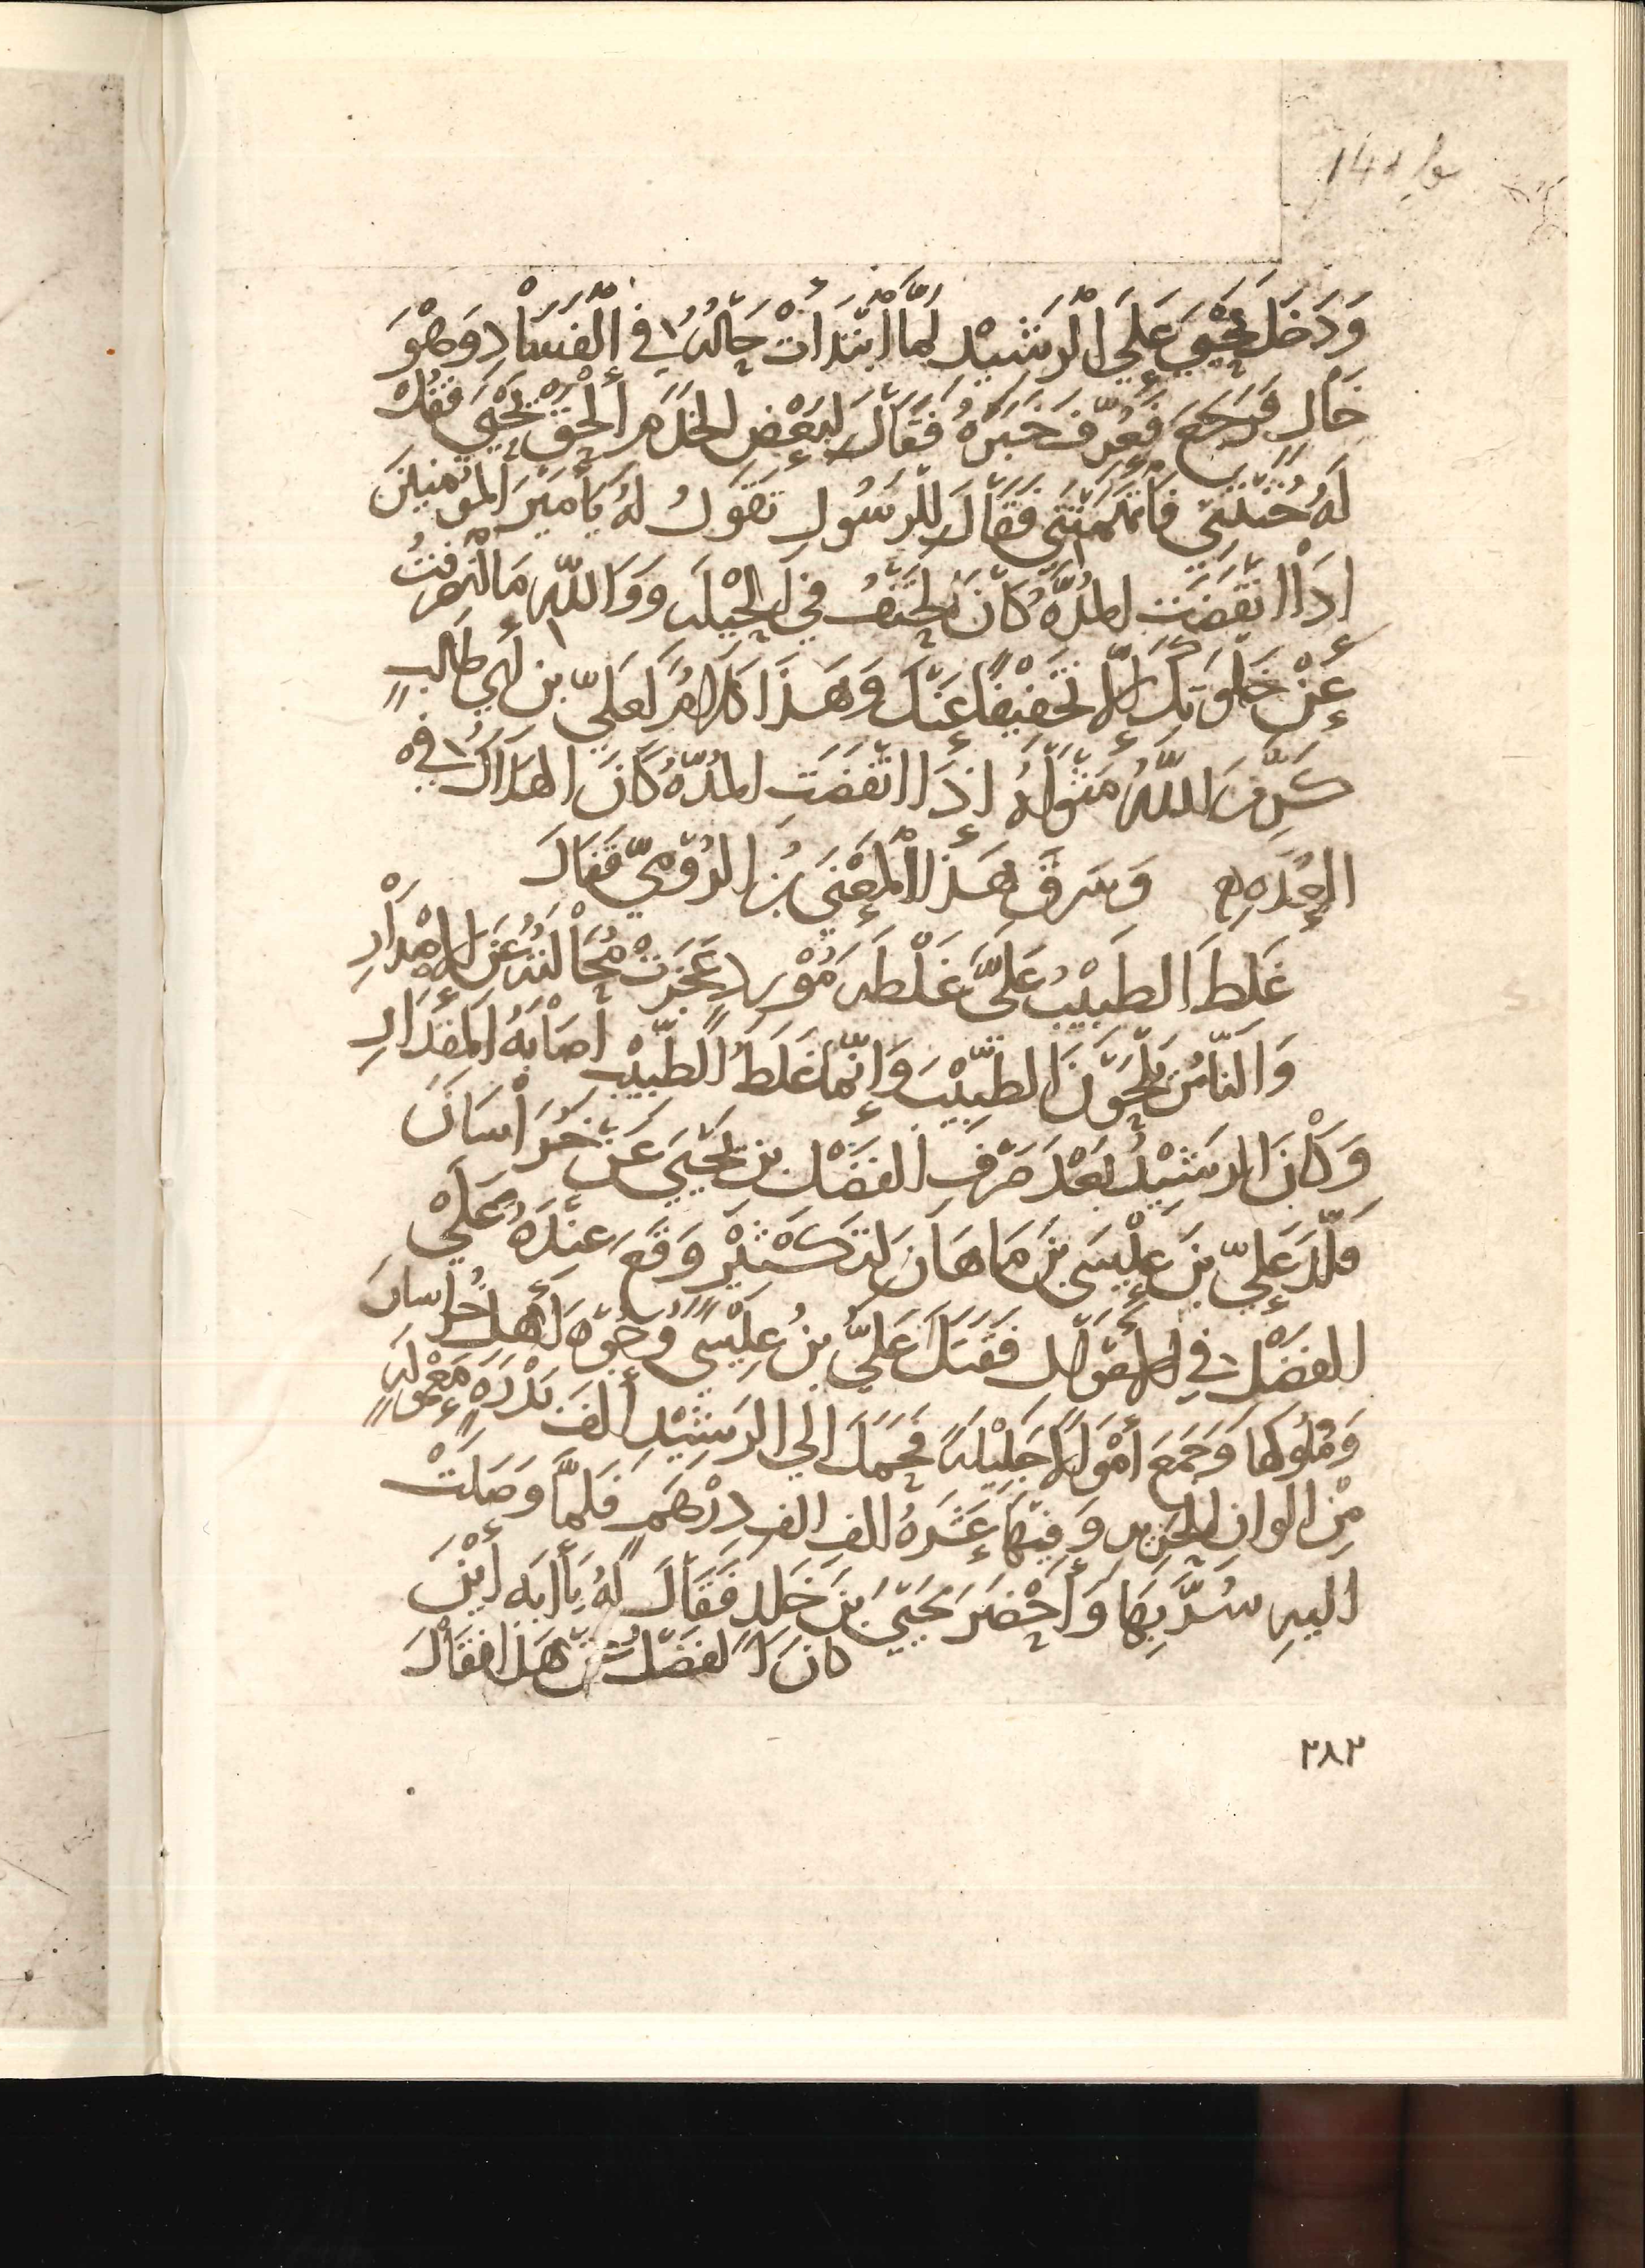 وَدَخَلَ يَحْيَى عَلَى الرَّشِيْدِ لَمَّا ابْتَدَأَتْ حَالُهُ فِي الْفَسَادِ وَهُوَ
خَالٍ فَرَجَعَ فَعُرِّفَ خَبَرَهُ فَقَالَ لِبَعْضِ الخَدَمِ أَلْحَقْ يَحْيَى فَقُلْ
لَهُ خُنْتَنِي فَاتَّهَمْتَنِي فَقَالَ لِلرَّسُولِ تَقُولُ لَهُ يَا أَمِيْرَ المُؤْمِنِيْنَ
اِذَا انْقَضَتِ المُدَّةُ كَانَ الحَتْفُ فِي الحِيْلَه وَوَاللّهِ مَا انْصَرَفْتُ
عَنْ خَلْوَتِكَ إِلَّا تَخْفِيْفًا عَنْكَ وَهَذَا كَلَامٌ لِعَلِيّ بن أَبِي طَالِبٍ
كَرَّمَ اللّهُ مَثْوَاهُ إِذَا انْقَضَتِ المُدَّةُ كَانَ الهَلَاكُ فِي
العُدَّه وَسَرَقَ هَذَا الْمَعْنَى بنُ الرُّوْمِيِّ فَقَالَ
غَلِطَ الطَبِيْبُ عَلَيَّ غَلْطَه مُوْرِدٍ عَجَزَتْ مُحَالَتُهُ عَنِ الإِصْدَارِ
وَالنَّاسُ يَلْحَوْنَ الطَّبِيْبَ وَإِنَّمَا غَلَطُ الطَّبِيْبِ اصَابَهُ المِقْدَارِ
وَكَانَ الرَشِيْدُ بَعْدَ صَرْفِ الفَضْلِ بن يَحْيَى عَنْ خُرَاسَانَ
قَلَّدَ عَلِيّ بنَ عِيْسَى بنَ مَاهَانَ لِتَكْثِيْرٍ وَقَعَ عِنْدَهُ عَلَى
الفَضْلِ فِي الأَمْوَالِ فَقَتَلَ عَلِيُّ بنُ عِيْسَى وُجُوْهَ أَهْلِ خُرَاسَانَ
وَمُلُوكَهَا وَجَمَعَ أَمْوَالًا جَلِيْلَةً فَحَمَلَ الَى الرَشِيْدِ أَلْفَ بَدْرَةٍ مَعْمُولَةٍ
مِنْ الوانِ الحَرِيرِ وَفِيْهَا عَشَرَهُ الفِ الفِ دِرْهَمٍ فَلَمَّا وَصَلَتْ
اليهِ سُرَّ بِهَا وَأَحْضَرَ يَحْيَى بنَ خَلِدٍ فَقَالَ لَهُ يَا أَبَه أَيْنَ
كَانَ الفَضْلُ عَنْ هَذَا فَقَالَ
٣٨٣